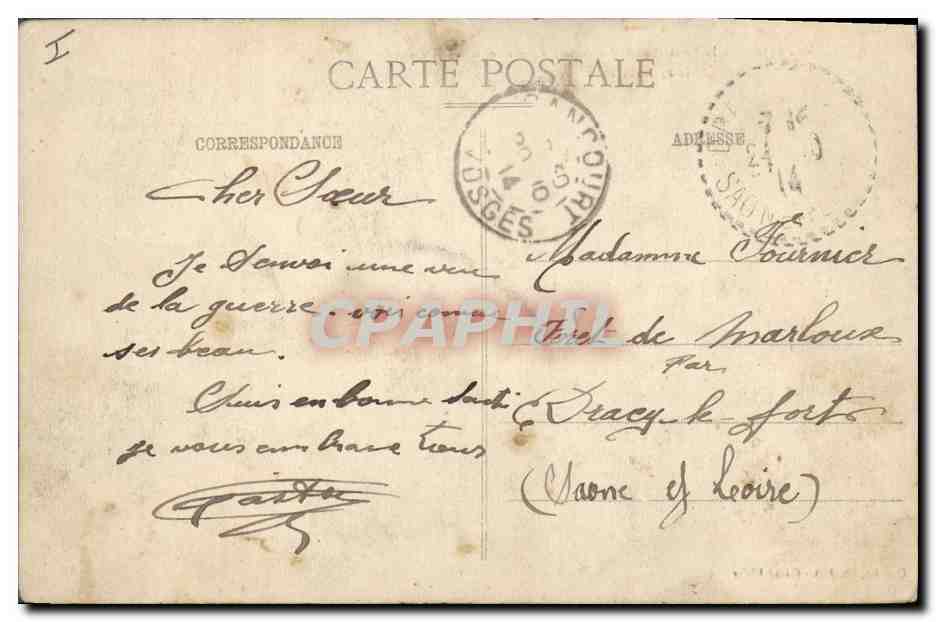 I
CARTE POSTALE
CORRESPONDANCE
ADRESSE
VOSGES
14
SAONE
14
Cher Sœur
Je Senvoi une vue
de la guerre. vois comme
ses beau.
Suis en bonne santé
je vous embrasse tous
Madamme Fournier
Foret de Marloux
Par
Dracy-le-fort
(Saone et Loire)
CPAPHIL